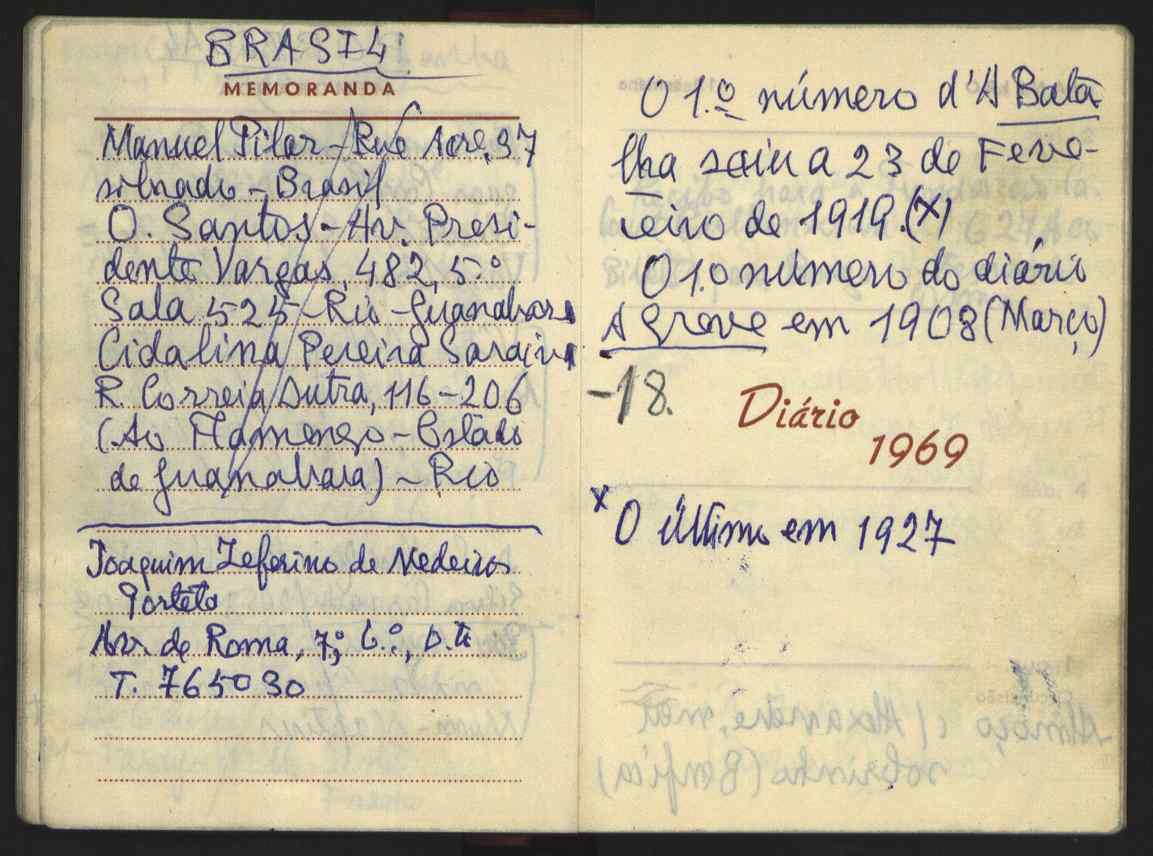 BRASIL
MEMORANDA
Manuel Pilar - Rua Acre, 97
- Brasil
O. Santos - Av. Presi-
dente Vargas, 482, 5º
Sala 525 - Rio - Guanabara
Cidalina Pereira Saraiva
R. Correia Dutra, 116 - 206
(Ao Flamengo - Estado
de Guanabara) - Rio
Joaquim Zeferino de Medeiros
Av. de Roma, 7, 6.º, D.to
T. 765030
O 1.º número d'A Bata
lha saiu a 23 de Feve-
reiro de 1919. (X)
O 1.o número do diário
A Greve em 1908 (Março)
- 18.
Diário
1969
X O Último em 1927